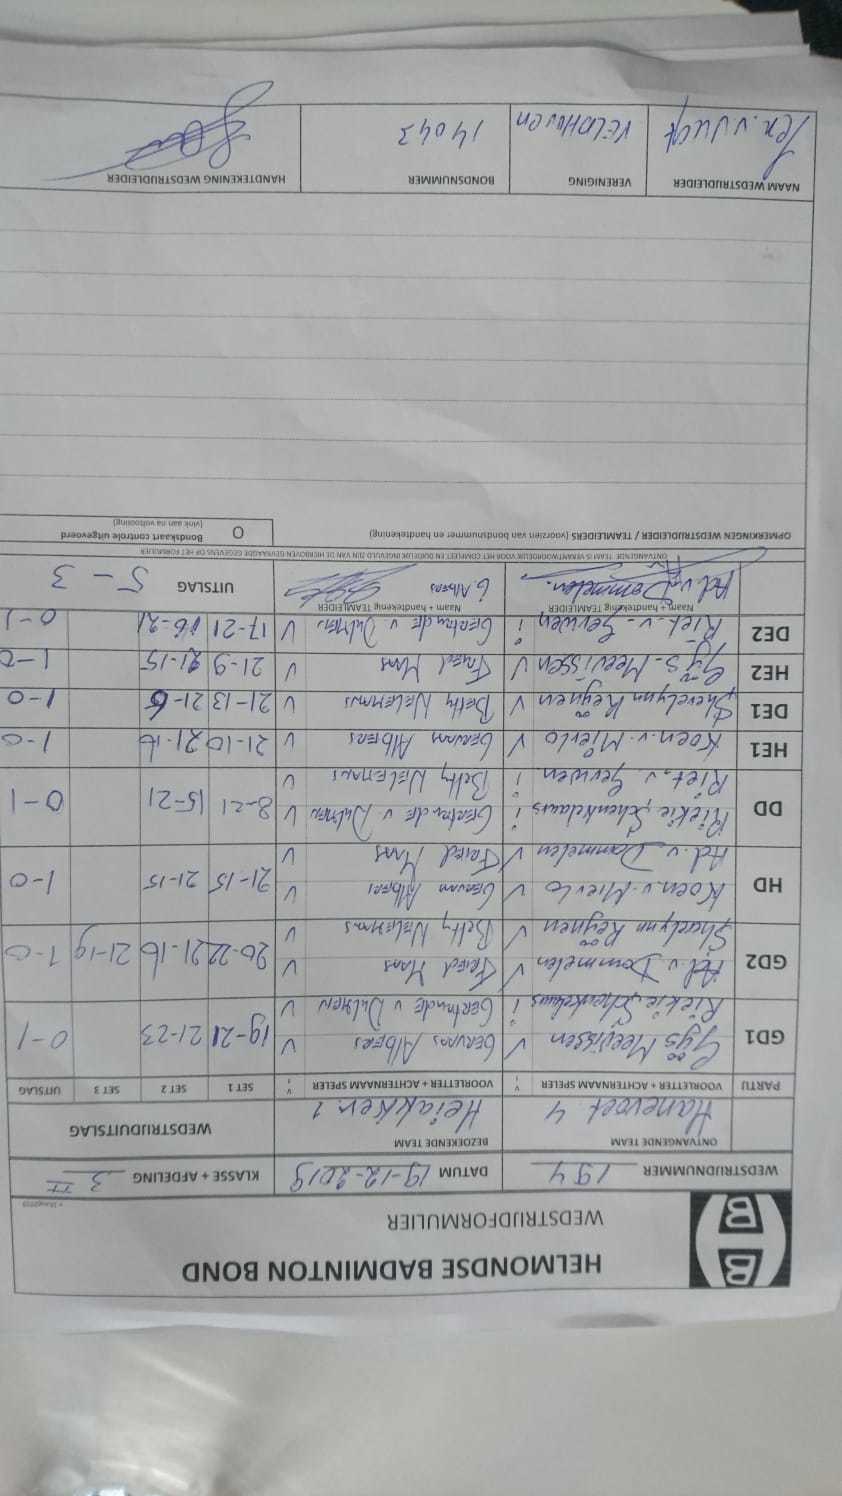 HELMONDSE BADMINTON BOND
WEDSTRIJDFORMULIER
WEDSTRIJDNUMMER 194 DATUM 19-12-2019 KLASSE + AFDELING 3 II
ONTVANGENDE TEAM BEZOEKENDE TEAM WEDSTRIJDUITSLAG
Hanevoet 4 Heiakker 1
PARTIJ VOORLETTER + ACHTERNAAM SPELER V VOORLETTER + ACHTERNAAM SPELER V SET 1 SET 2 SET 3 UITSLAG
GD1 Gijs Meevissen V Gervans Albers V 19-21 21-23 0-1
Riekie Schenkelaars i Gertrude v Dulmen V
GD2 Ad. v. Dommelen V Fried Maas V 20-22 21-16 21-19 1-0
Sharelynn Reijnen V Betty Nelemans V
HD Koen. v. Mierlo V Gervan Albers V 21-15 21-15 1-0
Ad. v. Dommelen V Fried Maas V
DD Riekie Schenkelaars i Gertrude v Dulmen V 8-21 15-21 0-1
Riet. v. Gerwen. i Betty Nelemans V
HE1 Koen. v. Mierlo V Gervan Albers V 21-10 21-16 1-0
DE1 Shevelynn Reijnen V Betty Nelemans V 21-13 21-6 1-0
HE2 Gijs. Meevissen V Fried Maas V 21-9 21-15 1-0
DE2 Riet. v. Gerwen i Gertrude v. Dulmen V 17-21 16-21 0-1
Naam + handtekening TEAMLEIDER Naam + handtekening TEAMLEIDER
Ad. v. Dommelen. G. Albers UITSLAG 5-3
ONTVANGENDE TEAM IS VERANTWOORDELIJK VOOR HET COMPLEET EN DUIDELIJK INGEVULD ZIJN VAN DE HIERBOVEN GEVRAAGDE GEGEVENS OP HET FORMULIER
OPMERKINGEN WEDSTRIJDLEIDER / TEAMLEIDERS (voorzien van bondsnummer en handtekening) O Bondskaart controle uitgevoerd
(vink aan na voltooiing)
NAAM WEDSTRIJDLEIDER VERENIGING BONDSNUMMER HANDTEKENING WEDSTRIJDLEIDER
VELDHOVEN 14043